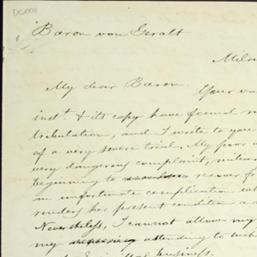 Baron von Geralt
My dear Baron. Your
inst & its copy have found
tribulation, and I write to you
of a very severe trial. My poor
very dangerous complaint,
beginning to recover
an unfortunate complication
renders her present condition a
Nevertheless, I cannot allow my
my attending to
business.